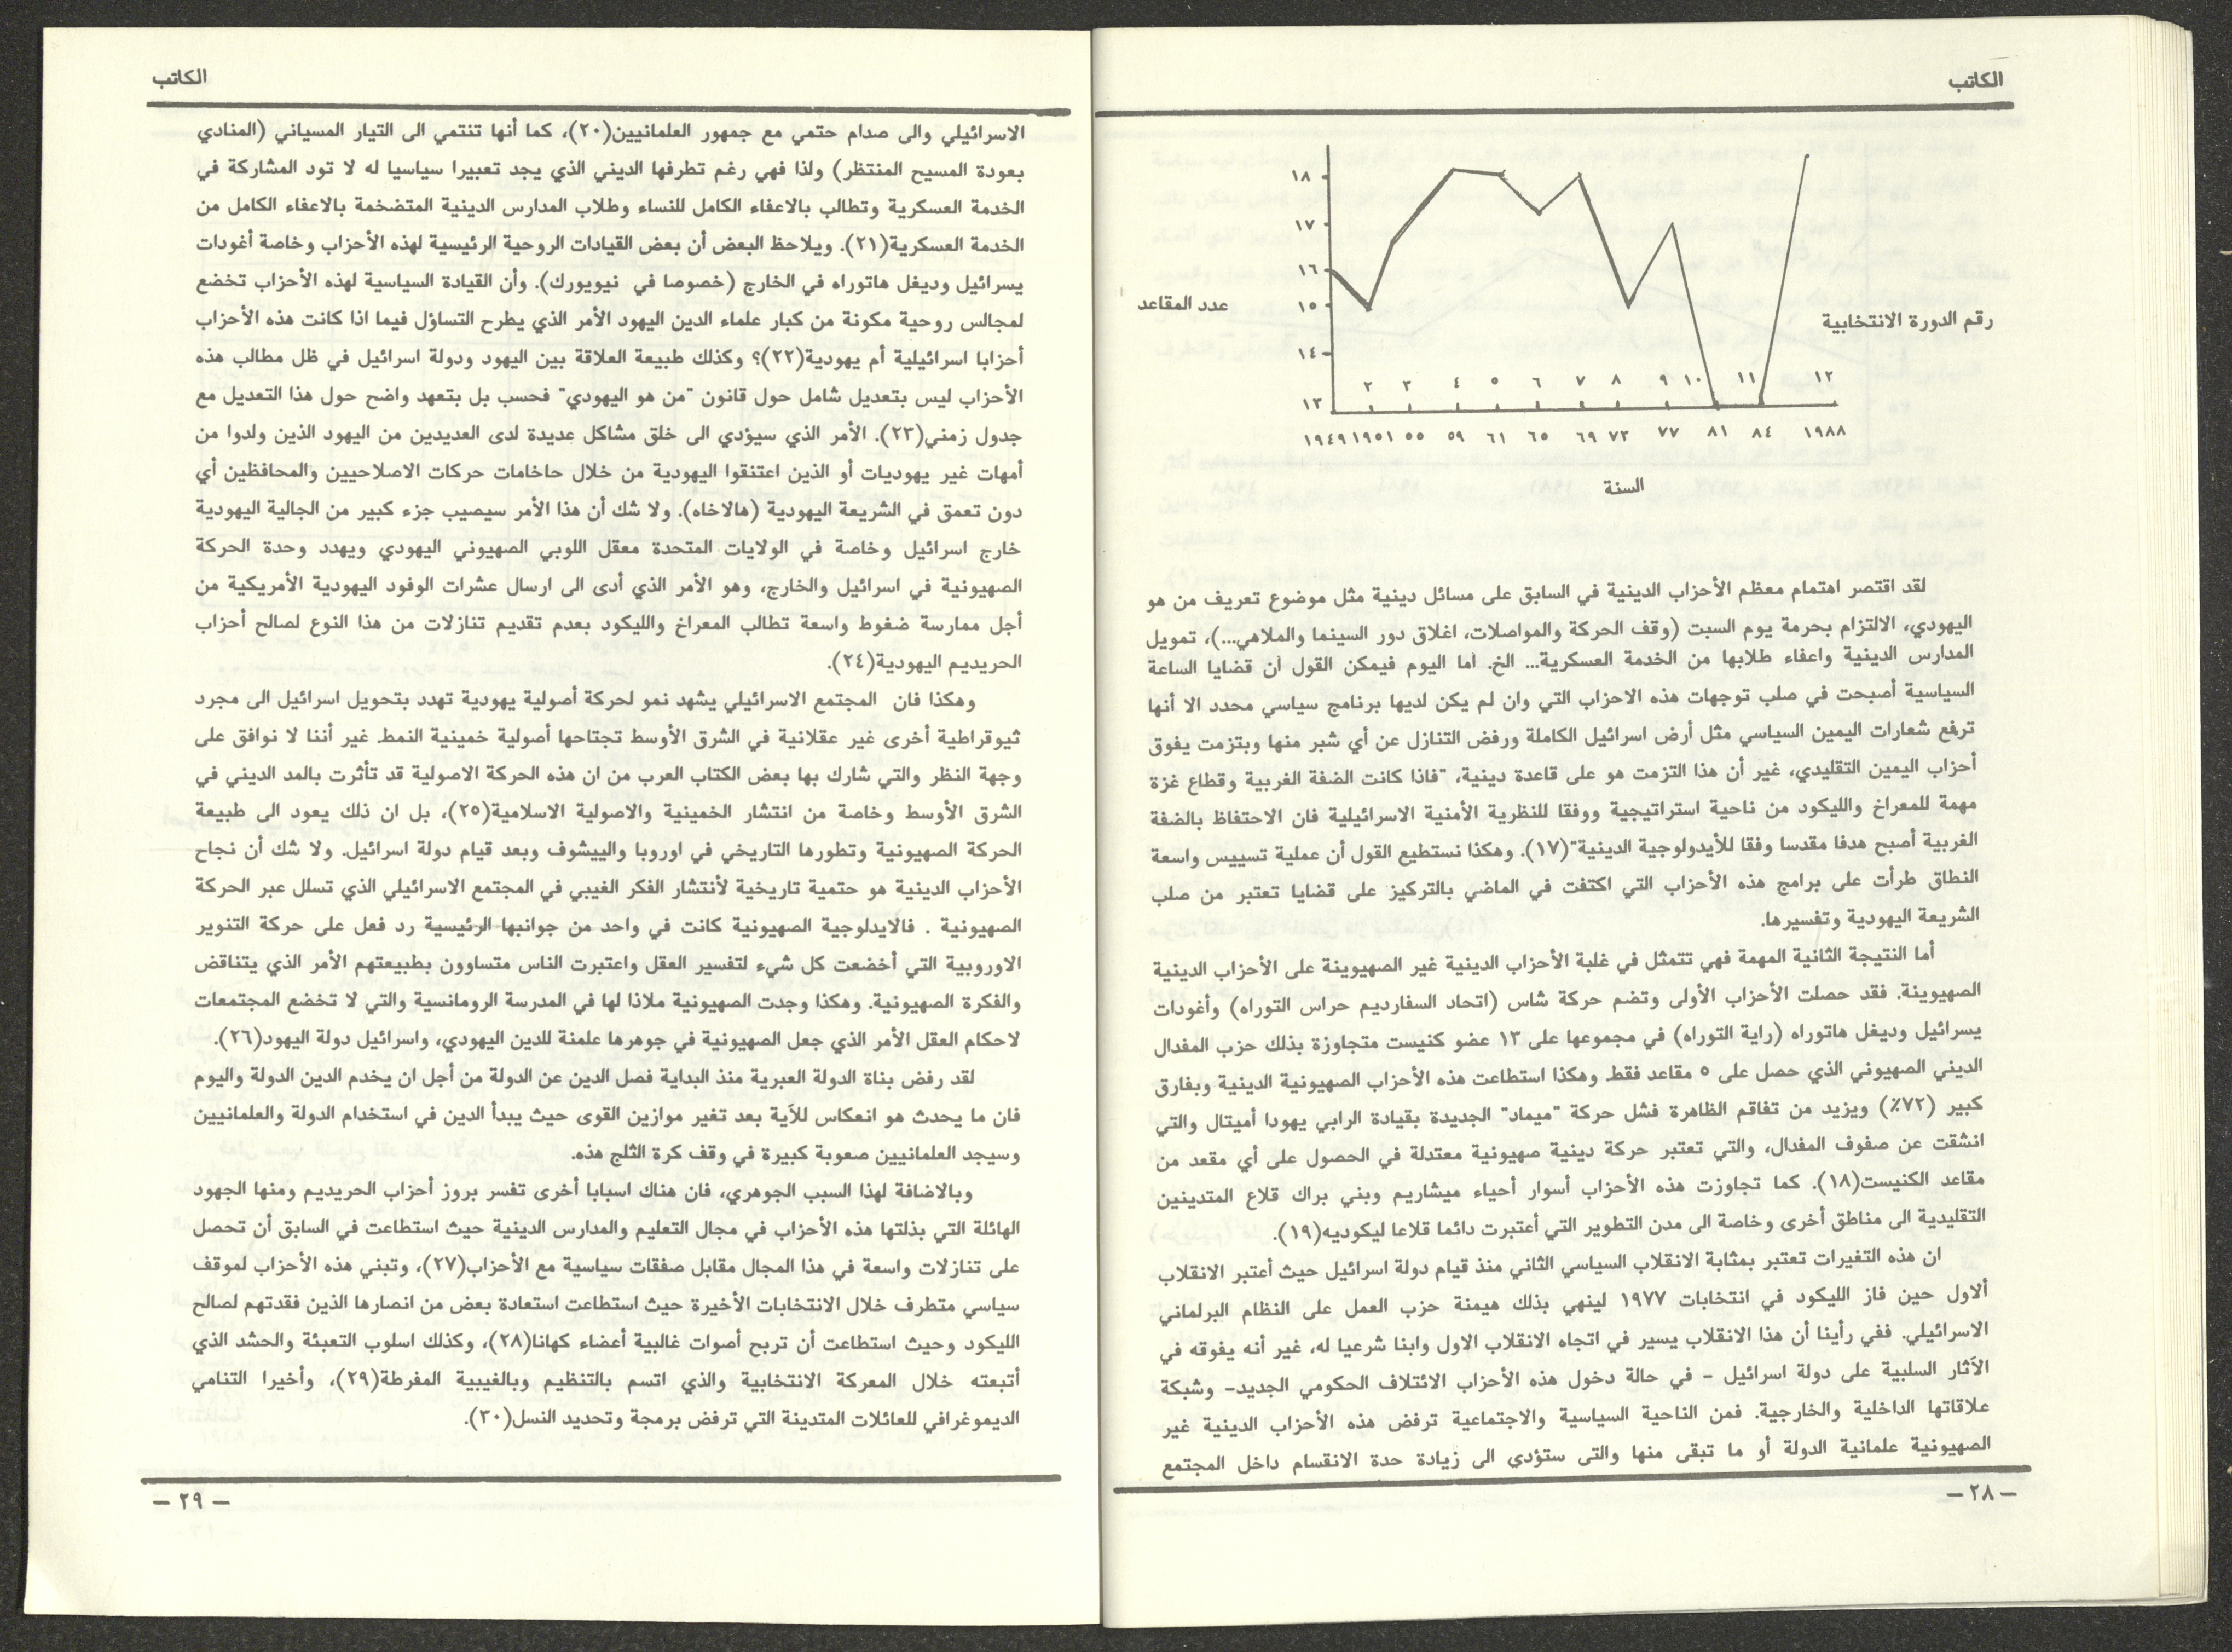 الكاتب
١٨
١٧
١٦
١٥
١٤
١٣
عدد المقاعد
رقم الدورة الانتخابية
٢ ٣ ٤ ٥ ٦ ٧ ٨ ٩ ١٠ ١١ ١٢
١٩٤٩ ١٩٥١ ٥٥ ٥٩ ٦١ ٦٥ ٦٩ ٧٣ ٧٧ ٨١ ٨٤ ١٩٨٨
السنة
لقد اقتصر اهتمام معظم الأحزاب الدينية في السابق على مسائل دينية مثل موضوع تعريف من هو
اليهودي، الالتزام بحرمة يوم السبت (وقف الحركة والمواصلات، اغلاق دور السينما والملاهي...)، تمويل
المدارس الدينية واعفاء طلابها من الخدمة العسكرية... الخ. اما اليوم فيمكن القول أن قضايا الساعة
السياسية أصبحت في صلب توجهات هذه الاحزاب التي وان لم يكن لديها برنامج سياسي محدد الا أنها
ترفع شعارات اليمين السياسي مثل أرض اسرائيل الكاملة ورفض التنازل عن أي شبر منها وبتزمت يفوق
أحزاب اليمين التقليدي، غير أن هذا التزمت هو على قاعدة دينية، "فاذا كانت الضفة الغربية وقطاع غزة
مهمة للمعراخ والليكود من ناحية استراتيجية ووفقا للنظرية الأمنية الاسرائيلية فان الاحتفاظ بالضفة
الغربية أصبح هدفا مقدسا وفقا للأيدولوجية الدينية"(١٧). وهكذا نستطيع القول أن عملية تسييس واسعة
النطاق طرأت على برامج هذه الأحزاب التي اكتفت في الماضي بالتركيز على قضايا تعتبر من صلب
الشريعة اليهودية وتفسيرها.
أما النتيجة الثانية المهمة فهي تتمثل في غلبة الأحزاب الدينية غير الصهيوينة على الأحزاب الدينية
الصهيوينة. فقد حصلت الأحزاب الأولى وتضم حركة شاس (اتحاد السفارديم حراس التوراه) وأغودات
يسرائيل وديغل هاتوراه (راية التوراه) في مجموعها على ١٣ عضو كنيست متجاوزة بذلك حزب المفدال
الديني الصهيوني الذي حصل على ٥ مقاعد فقط. وهكذا استطاعت هذه الأحزاب الصهيونية الدينية وبفارق
كبير (٧٢٪) ويزيد من تفاقم الظاهرة فشل حركة "ميماد" الجديدة بقيادة الرابي يهودا أميتال والتي
انشقت عن صفوف المفدال، والتي تعتبر حركة دينية صهيونية معتدلة في الحصول على أي مقعد من
مقاعد الكنيست(١٨). كما تجاوزت هذه الأحزاب أسوار أحياء ميشاريم وبني براك قلاع المتدينين
التقليدية الى مناطق أخرى وخاصة الى مدن التطوير التي أعتبرت دائما قلاعا ليكوديه(١٩).
ان هذه التغيرات تعتبر بمثابة الانقلاب السياسي الثاني منذ قيام دولة اسرائيل حيث أعتبر الانقلاب
ألاول حين فاز الليكود في انتخابات ١٩٧٧ لينهي بذلك هيمنة حزب العمل على النظام البرلماني
الاسرائيلي. ففي رأينا أن هذا الانقلاب يسير في اتجاه الانقلاب الاول وابنا شرعيا له، غير أنه يفوقه في
الآثار السلبية على دولة اسرائيل - في حالة دخول هذه الأحزاب الائتلاف الحكومي الجديد- وشبكة
علاقاتها الداخلية والخارجية. فمن الناحية السياسية والاجتماعية ترفض هذه الأحزاب الدينية غير
الصهيونية علمانية الدولة أو ما تبقى منها والتى ستؤدي الى زيادة حدة الانقسام داخل المجتمع
— ٢٨ —
الكاتب
الاسرائيلي والى صدام حتمي مع جمهور العلمانيين(٢٠)، كما أنها تنتمي الى التيار المسياني (المنادي
بعودة المسيح المنتظر) ولذا فهي رغم تطرفها الديني الذي يجد تعبيرا سياسيا له لا تود المشاركة في
الخدمة العسكرية وتطالب بالاعفاء الكامل للنساء وطلاب المدارس الدينية المتضخمة بالاعفاء الكامل من
الخدمة العسكرية(٢١). ويلاحظ البعض أن بعض القيادات الروحية الرئيسية لهذه الأحزاب وخاصة أغودات
يسرائيل وديغل هاتوراه في الخارج (خصوصا في نيويورك). وأن القيادة السياسية لهذه الأحزاب تخضع
لمجالس روحية مكونة من كبار علماء الدين اليهود الأمر الذي يطرح التساؤل فيما اذا كانت هذه الأحزاب
أحزابا اسرائيلية أم يهودية(٢٢)؟ وكذلك طبيعة العلاقة بين اليهود ودولة اسرائيل في ظل مطالب هذه
الأحزاب ليس بتعديل شامل حول قانون "من هو اليهودي" فحسب بل بتعهد واضح حول هذا التعديل مع
جدول زمني(٢٣). الأمر الذي سيؤدي الى خلق مشاكل عديدة لدى العديدين من اليهود الذين ولدوا من
أمهات غير يهوديات أو الذين اعتنقوا اليهودية من خلال حاخامات حركات الاصلاحيين والمحافظين أي
دون تعمق في الشريعة اليهودية (هالاخاه). ولا شك أن هذا الأمر سيصيب جزء كبير من الجالية اليهودية
خارج اسرائيل وخاصة في الولايات المتحدة معقل اللوبي الصهيوني اليهودي ويهدد وحدة الحركة
الصهيونية في اسرائيل والخارج، وهو الأمر الذي أدى الى ارسال عشرات الوفود اليهودية الأمريكية من
أجل ممارسة ضغوط واسعة تطالب المعراخ والليكود بعدم تقديم تنازلات من هذا النوع لصالح أحزاب
الحريديم اليهودية(٢٤).
وهكذا فان المجتمع الاسرائيلي يشهد نمو لحركة أصولية يهودية تهدد بتحويل اسرائيل الى مجرد
ثيوقراطية أخرى غير عقلانية في الشرق الأوسط تجتاحها أصولية خمينية النمط. غير أننا لا نوافق على
وجهة النظر والتي شارك بها بعض الكتاب العرب من ان هذه الحركة الاصولية قد تأثرت بالمد الديني في
الشرق الأوسط وخاصة من انتشار الخمينية والاصولية الاسلامية(٢٥)، بل ان ذلك يعود الى طبيعة
الحركة الصهيونية وتطورها التاريخي في اوروبا والييشوف وبعد قيام دولة اسرائيل. ولا شك أن نجاح
الأحزاب الدينية هو حتمية تاريخية لأنتشار الفكر الغيبي في المجتمع الاسرائيلي الذي تسلل عبر الحركة
الصهيونية . فالايدلوجية الصهيونية كانت في واحد من جوانبها الرئيسية رد فعل على حركة التنوير
الاوروبية التي أخضعت كل شيء لتفسير العقل واعتبرت الناس متساوون بطبيعتهم الأمر الذي يتناقض
والفكرة الصهيونية. وهكذا وجدت الصهيونية ملاذا لها في المدرسة الرومانسية والتي لا تخضع المجتمعات
لاحكام العقل الأمر الذي جعل الصهيونية في جوهرها علمنة للدين اليهودي، واسرائيل دولة اليهود(٢٦).
لقد رفض بناة الدولة العبرية منذ البداية فصل الدين عن الدولة من أجل ان يخدم الدين الدولة واليوم
فان ما يحدث هو انعكاس للآية بعد تغير موازين القوى حيث يبدأ الدين في استخدام الدولة والعلمانيين
وسيجد العلمانيين صعوبة كبيرة في وقف كرة الثلج هذه.
وبالاضافة لهذا السبب الجوهري، فان هناك اسبابا أخرى تفسر بروز أحزاب الحريديم ومنها الجهود
الهائلة التي بذلتها هذه الأحزاب في مجال التعليم والمدارس الدينية حيث استطاعت في السابق أن تحصل
على تنازلات واسعة في هذا المجال مقابل صفقات سياسية مع الأحزاب(٢٧)، وتبني هذه الأحزاب لموقف
سياسي متطرف خلال الانتخابات الأخيرة حيث استطاعت استعادة بعض من انصارها الذين فقدتهم لصالح
الليكود وحيث استطاعت أن تربح أصوات غالبية أعضاء كهانا(٢٨)، وكذلك اسلوب التعبئة والحشد الذي
أتبعته خلال المعركة الانتخابية والذي اتسم بالتنظيم وبالغيبية المفرطة(٢٩)، وأخيرا التنامي
الديموغرافي للعائلات المتدينة التي ترفض برمجة وتحديد النسل(٣٠).
— ٢٩ —